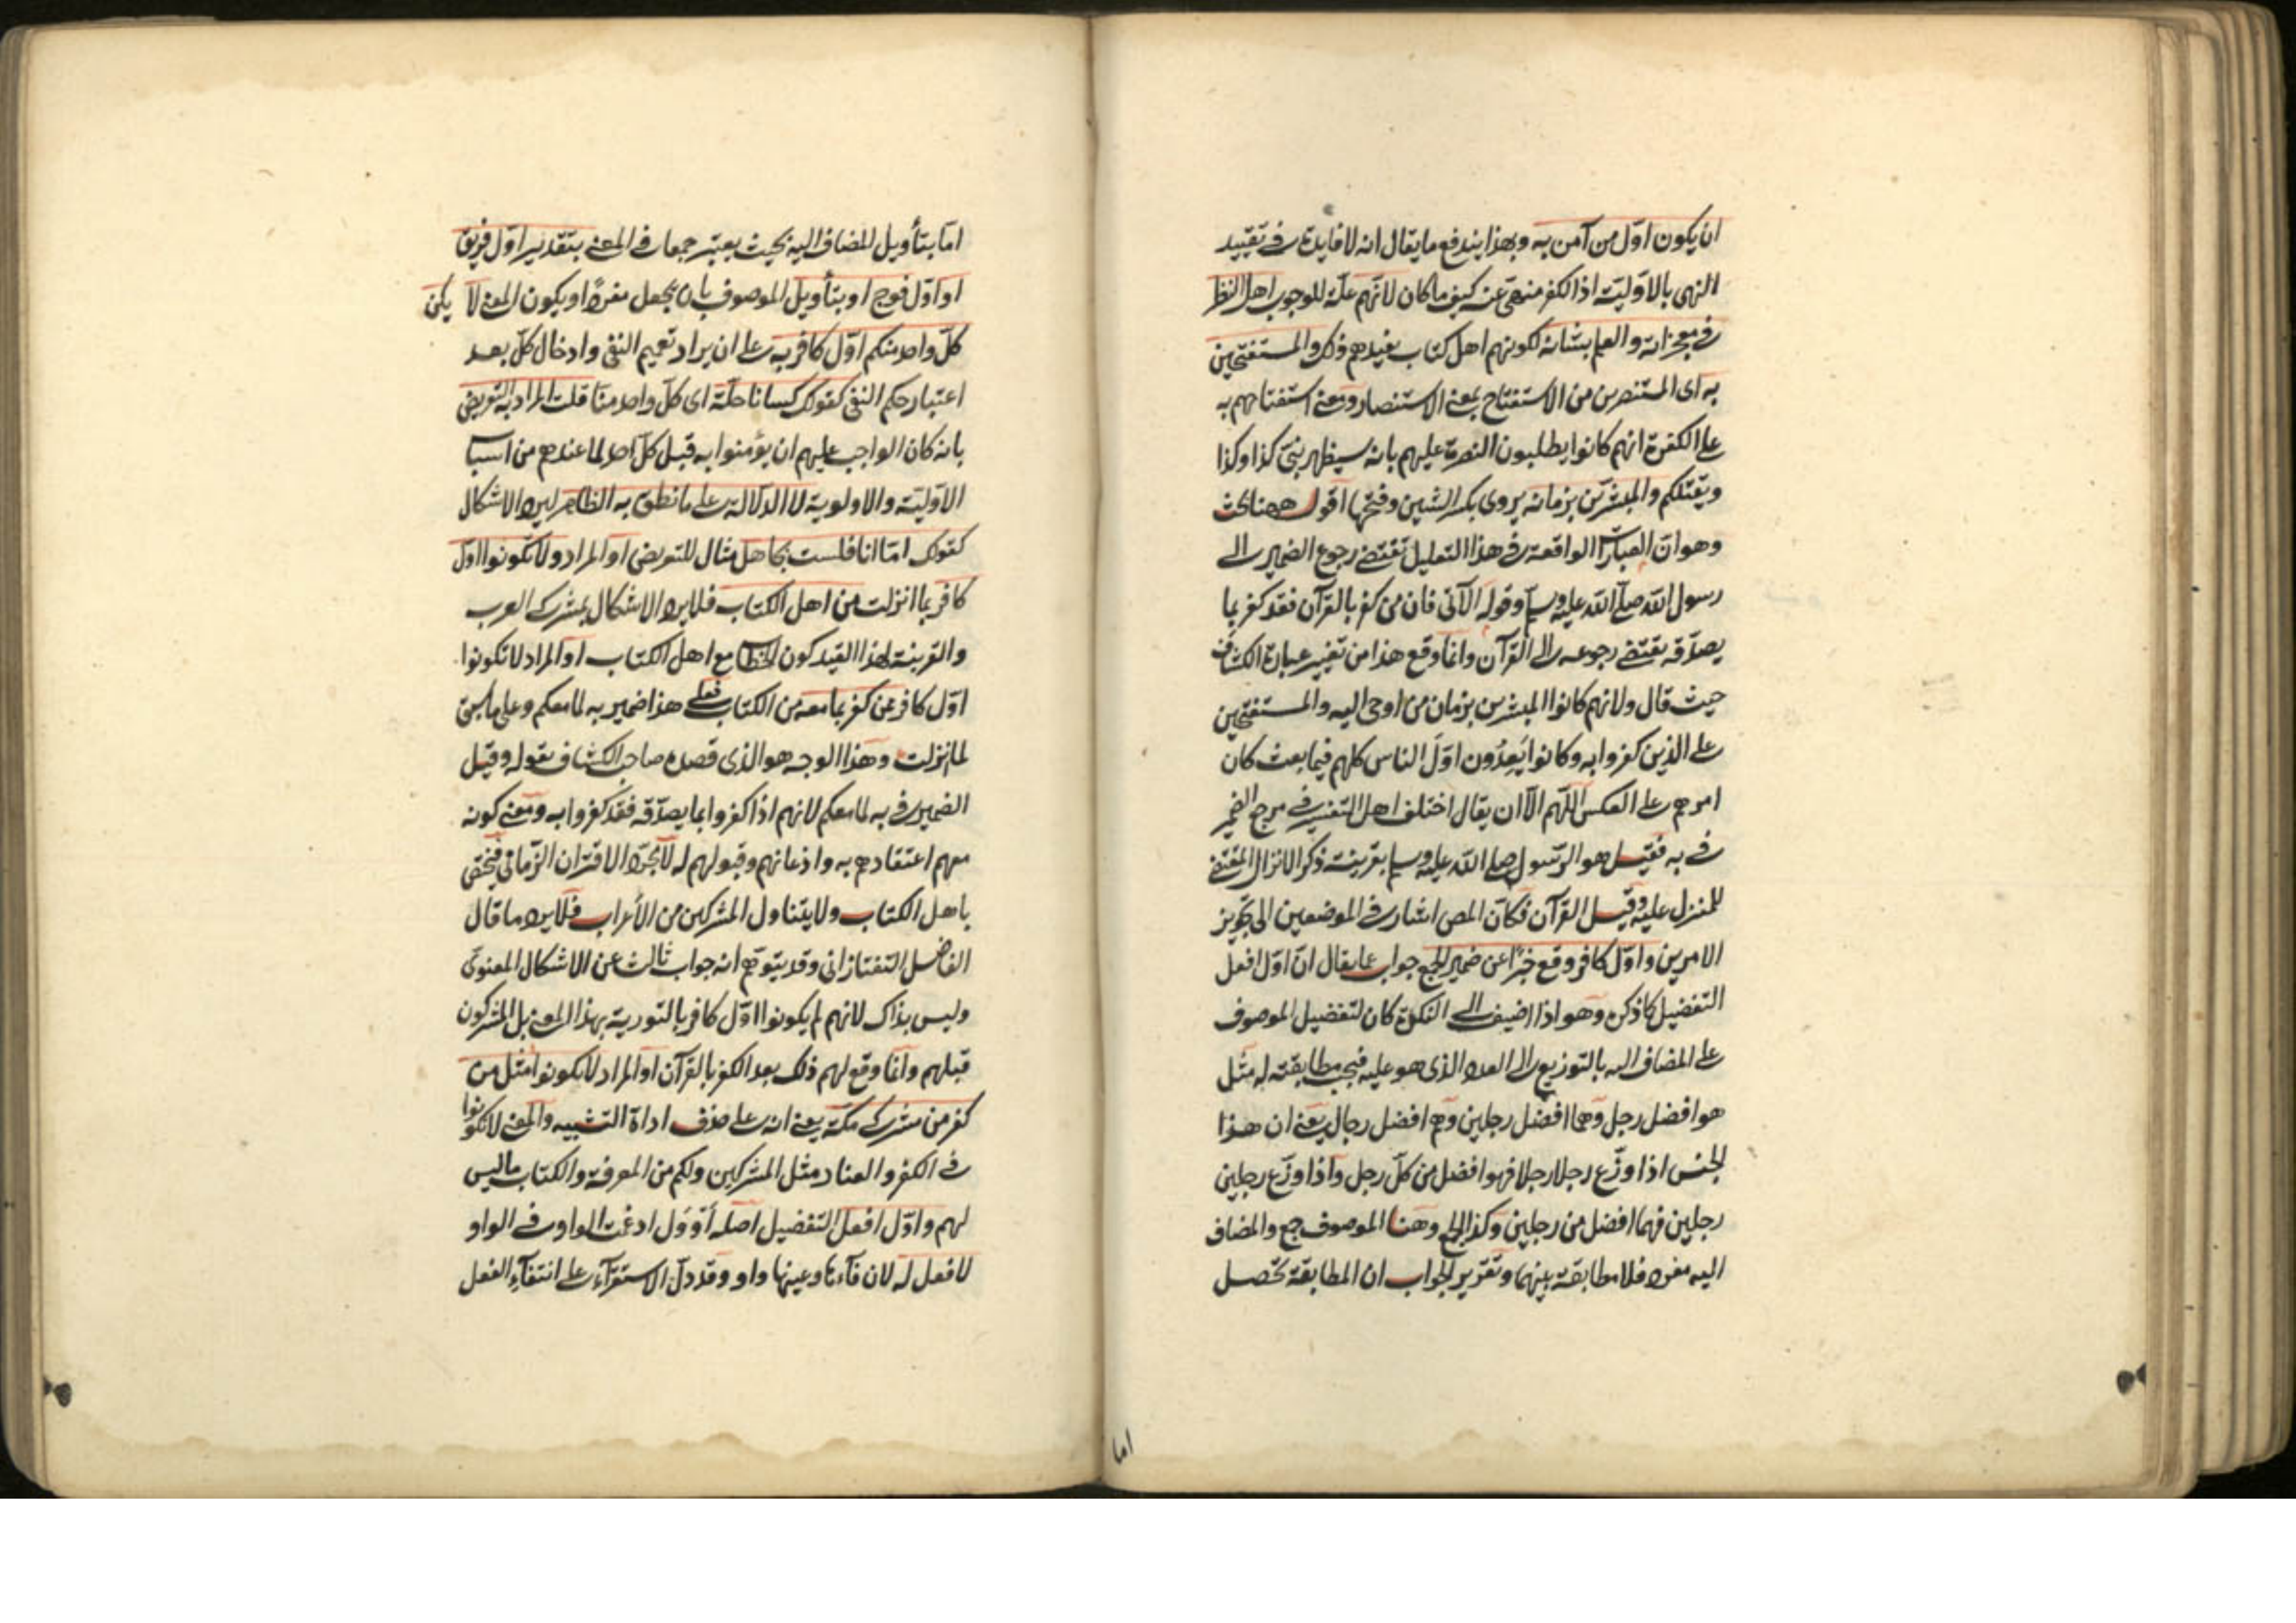 ان يكون اوّل من آمن به وبهذا يندفع ما يقال انه لا فايدة في تقييد
النهى بالاوّليّة اذ الكفر منهىّ عنه كيف ما كان لانّهم علّة للوجوب اهل النظر
في معجزاته والعلم بشانه لكونهم اهل كتاب يفيدهم ذلك والمستفتحين
به اى المستنصرين من الاستفتاح بمعنى الاستنصار ومعنى استفتاحهم به
على الكفرة انهم كانوا يطلبون النصرة عليهم بانه سيظهر نبىّ كذا وكذا
ويقتلكم والمبشّرين بزمانه يروى بكسر الشين وفتحها اقول ههنا بحث
وهو ان العبارات الواقعة في هذا التعليل تقتضى رجوع الضمير الى
رسول الله صلّى الله عليه وسلم وقوله الآتى فان من كفر بالقرآن فقد كفر بما
يصدّقه يقتضى رجوعه الى القرآن وانما وقع هذا من تغيير عبارة الكشاف
حيث قال ولانهم كانوا المبشرين بزمان من اوحى اليه والمستفتحين
على الذين كفروا به وكانوا يَعِدُون اوّل الناس كلهم فيما بعث كان
امرهم على العكس اللّهم الّا ان يقال اختلف اهل التفسير في مرجع الضمير
في به فقيل هو الرّسول صلى الله عليه وسلم بقرينة ذكر الانزال المقتضى
للمنزل عليه وقيل القرآن فكانّ المص اشار في الموضعين الى تجويز
الامرين واوّل كافر وقع خبرًا عن ضمير الجمع جواب عما يقال انّ اوّل افعل
التفضيل كما ذكره وهو اذا اضيف الى النكرة كان لتفضيل الموصوف
على المضاف اليه بالتوزيع الى العدد الذى هو عليه فيجب مطابقته له مثل
هو افضل رجل وهما افضل رجلين وهم افضل رجال يعنى ان هذا
الجنس اذا وزّع رجلا رجلا فهو افضل من كلّ رجل واذا وزّع رجلين
رجلين فهما افضل من رجلين وكذا الجمع وهنا الموصوف جمع والمضاف
اليه مفرد فلا مطابقة بينهما وتقرير الجواب ان المطابقة تحصل
اما
امّا بتأويل المضاف اليه بحيث يعتبر جمعا في المعنى بتقدير اوّل فريق
او اوّل فوج او بتأويل الموصوف بان يجعل مفردًا ويكون المعنى لا يكن
كلّ واحد منكم اوّل كافر به على ان يراد تعميم النفى وادخال كلّ بعد
اعتبار حكم النفى كقولك كسانا حلّة اى كلّ واحد منّا قلت المراد به التعريض
بانه كان الواجب عليهم ان يؤمنوا به قبل كلّ احد لما عندهم من اسباب
الاوّليّة والاولوية لا الدلالة على ما نطق به الظاهر ليرد الاشكال
كقولك امّا انا فلست بجاهل مثال للتعريض او المراد ولا تكونوا اوّل
كافر بما انزلت من اهل الكتاب فلا يرد الاشكال بمشركى العرب
والقرينة لهذا القيد كون الخطاب مع اهل الكتاب او المراد لا تكونوا
اوّل كافر ممن كفر بما معه من الكتاب فعلى هذا ضمير به لما معكم وعلى ما سبق
لما نزلت وهذا الوجه هو الذى قصده صاحب الكشاف بقوله وقيل
الضمير في به لما معكم لانهم اذا كفروا بما يصدّقه فقد كفروا به ومعنى كونه
معهم اعتقادهم به واذعانهم وقبولهم له لا مجرّد الاقتران الزّمانى فيختص
باهل الكتاب ولا يتناول المشركين من الأعراب فلا يرد ما قال
الفاضل التفتازانى وقد يتوهّم انه جواب ثالث عن الاشكال المعنوى
وليس بذاك لانهم لم يكونوا اوّل كافر بالتورية بهذا المعنى بل المشركون
قبلهم وانّما وقع لهم ذلك بعد الكفر بالقرآن او المراد لا تكونوا مثل من
كفر من مشركى مكّة يعنى انه على حذف اداة التشبيه والمعنى لا تكونوا
في الكفر والعناد مثل المشركين ولكم من المعرفة والكتاب ما ليس
لهم واوّل افعل التفضيل اصله أَوْوَل ادغمت الواو في الواو
لا فعل له لان فآءها وعينها واو وقد دلّ الاستقرآء على انتفآء الفعل